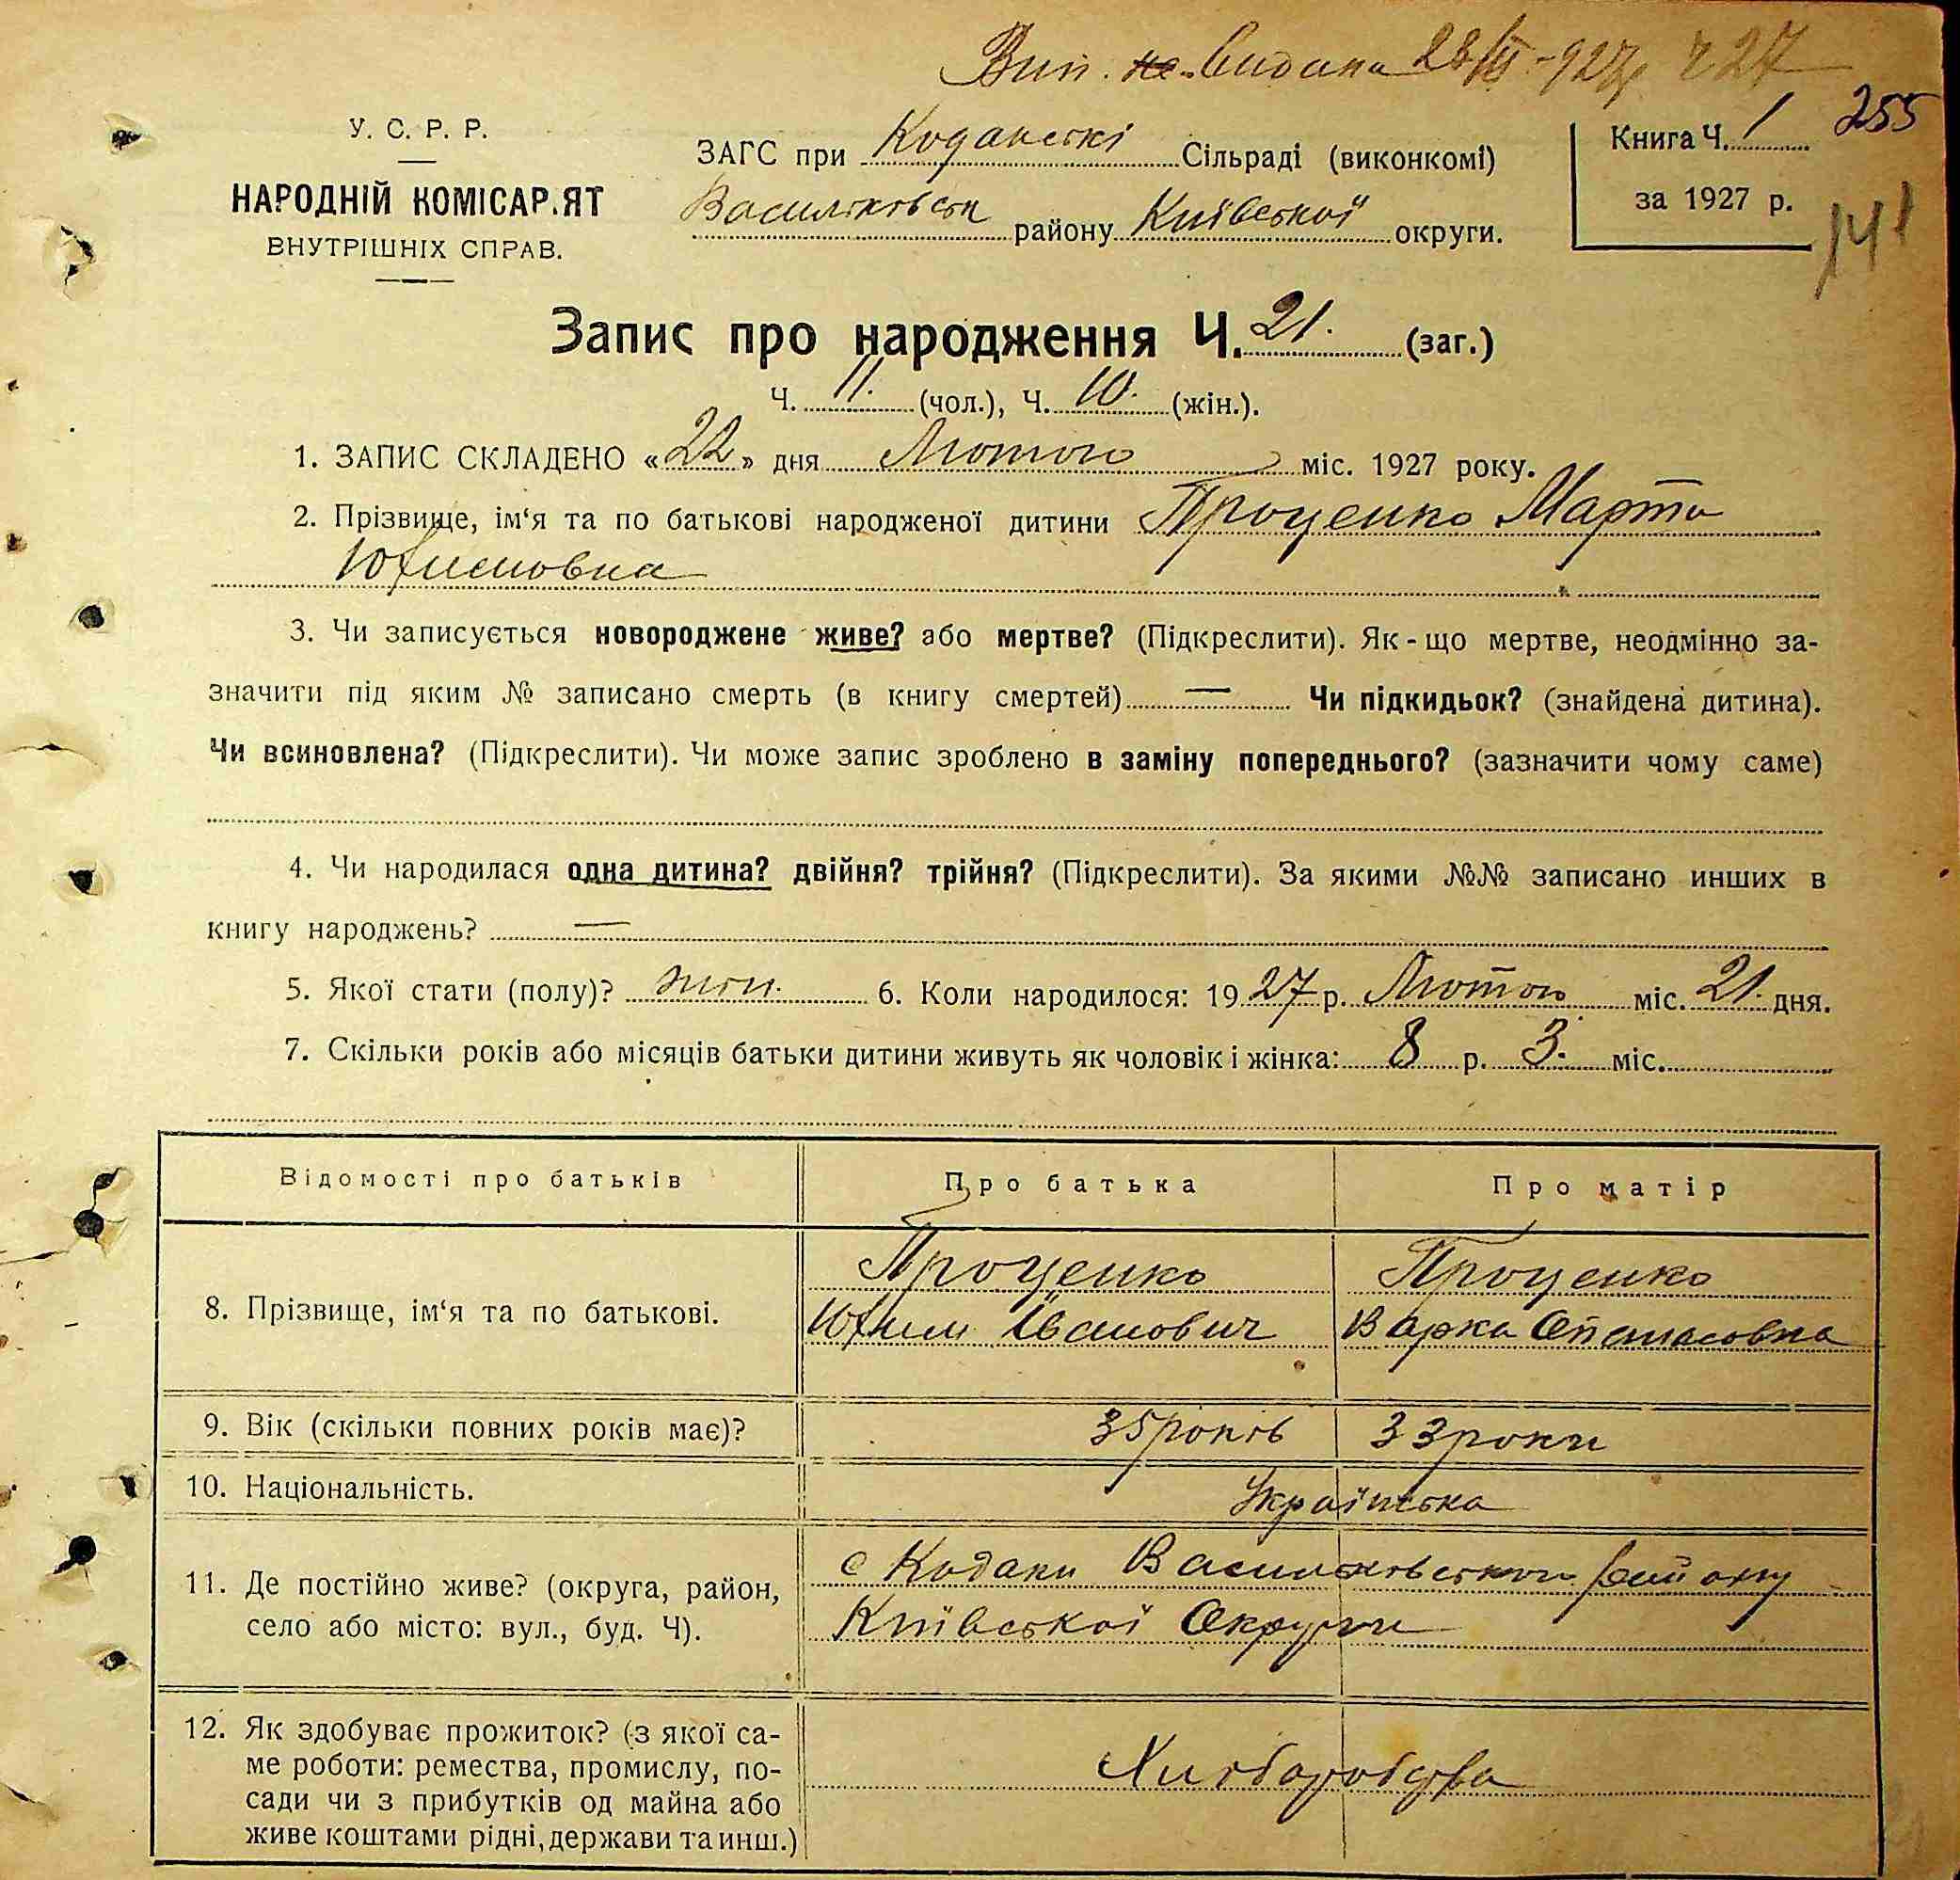 Вип. не видана 28/III-927р ч 27
255
У. С. Р. Р.
НАРОДНІЙ КОМІСАР.ЯТ
ВНУТРІШНІХ СПРАВ.
ЗАГС при Коданські Сільраді (виконкомі)
Васильковськ району Київської округи.
Книга Ч. 1
за 1927 р.
141
Запис про народження Ч. 21. (заг.)
Ч. 11. (чол.), Ч. 10. (жін.).
1. ЗАПИС СКЛАДЕНО «22» дня Лютого міс. 1927 року.
2. Прізвище, ім‘я та по батькові народженої дитини Проценко Марта
Юхимовна
3. Чи записується новороджене живе? або мертве? (Підкреслити). Як-що мертве, неодмінно за-
значити під яким № записано смерть (в книгу смертей) — Чи підкидьок? (знайдена дитина).
Чи всиновлена? (Підкреслити). Чи може запис зроблено в заміну попереднього? (зазначити чому саме)
4. Чи народилася одна дитина? двійня? трійня? (Підкреслити). За якими №№ записано инших в
книгу народжень? —
5. Якої стати (полу)? жін. 6. Коли народилося: 1927 р. Лютого міс. 21. дня.
7. Скільки років або місяців батьки дитини живуть як чоловік і жінка: 8 р. 3. міс.
Відомості про батьків Про батька Про матір
8. Прізвище, ім‘я та по батькові.
Проценко Проценко
Юхим Іванович Варка Опанасовна
9. Вік (скільки повних років має)? 35 років 33 роки
10. Національність. Українська
11. Де постійно живе? (округа, район,
село або місто: вул., буд. Ч).
с Кодаки Васильковського району
Київської Округи
12. Як здобуває прожиток? (з якої са-
ме роботи: ремества, промислу, по-
сади чи з прибутків од майна або
живе коштами рідні, держави та инш.)
Хліборобства